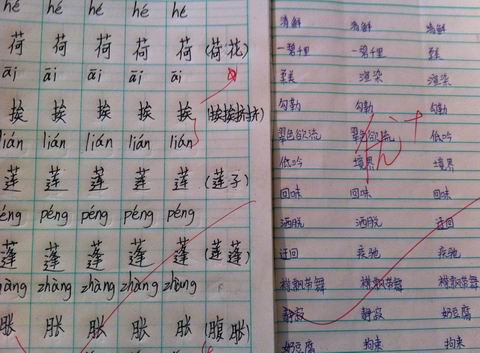 hé hé hé hé
荷 荷 荷 荷 荷 (荷花)
āi āi āi āi āi
挨 挨 挨 挨 挨 (挨挨挤挤)
lián lián lián lián lián
莲 莲 莲 莲 莲 (莲子)
éng péng péng péng péng
蓬 蓬 蓬 蓬 蓬 (莲蓬)
hàng zhàng zhàng zhàng zhàng
胀 胀 胀 胀 胀 (腹胀)
清鲜 清鲜 清鲜
一碧千里 一碧千里 柔美
柔美 渲染 渲染
勾勒 勾勒 勾勒
翠色欲流 翠色欲流 低吟
低吟 境界 境界
回味 回味 回味
洒脱 洒脱 迂回
迂回 疾驰 疾驰
襟飘带舞 襟飘带舞 襟飘带舞
静寂 静寂 奶豆腐
奶豆腐 拘束 拘束
优+